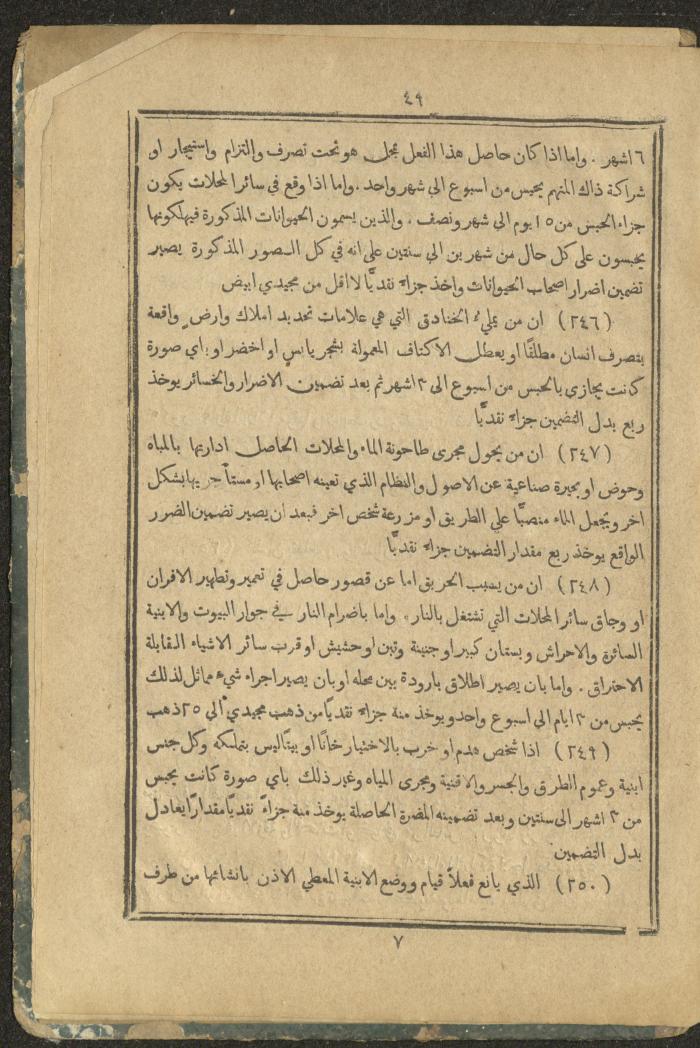 ٤٩
٦ اشهر . واما اذا كان حاصل هذا الفعل بمحل هو تحت تصرف والتزام واستيجار او
شراكة ذاك المتهم يحبس من اسبوع الى شهر واحد . واما اذا وقع في سائر المحلات يكون
جزاء الحبس من ١٥ يوم الى شهر ونصف . والذين يسمون الحيوانات المذكورة فيهلكونها
يحبسون على كل حال من شهرين الى سنتين على انه في كل الصور المذكورة يصير
تضمين اضرار اصحاب الحيوانات واخذ جزاء نقديًا لا اقل من مجيدي ابيض
(٢٤٦) ان من يملي الخنادق التي هي علامات تحديد املاك وارض واقعة
بتصرف انسان مطلقًا او يعطل الاكتاف المعمولة بشجر يابس او اخضر او باي صورة
كانت يجازي بالحبس من اسبوع الى ٣ اشهر ثم بعد تضمين الاضرار والخسائر يوخذ
ربع بدل التضمين جزاء نقديًا
(٢٤٧) ان من يحول مجرى طاحونة الماء والمحلات الحاصل ادارتها بالمياه
وحوض او بحيرة صناعية عن الاصول والنظام الذي تعينه اصحابها او مستأجريها بشكل
اخر ويجعل الماء منصبًا على الطريق او مزرعة شخص اخر فبعد ان يصير تضمين الضرر
الواقع يوخذ ربع مقدار التضمين جزاء نقديًا
(٢٤٨) ان من يسبب الحريق اما عن قصور حاصل في تعمير وتطهير الافران
او وجاق سائر المحلات التي تشتغل بالنار . واما باضرام النار في جوار البيوت والابنية
السائرة والاحراش وبستان كبير او جنينة وتبن او حشيش او قرب سائر الاشياء القابلة
الاحتراق . واما بان يصير اطلاق بارودة بين محله او بان يصير اجراء شيء مماثل لذلك
يحبس من ٣ ايام الى اسبوع واحد ويوخذ منه جزاء نقديًا من ذهب مجيدي الى ٢٥ ذهب
(٢٤٩) اذا شخص هدم او خرب بالاختيار خانًا او بيتًا ليس بتملكه وكل جنس
ابنية وعموم الطرق والجسر والاقنية ومجرى المياه وغير ذلك باي صورة كانت يحبس
من ٣ اشهر الى سنتين وبعد تضمينه المضرة الحاصلة يوخذ منه جزاءً نقديًا مقدارًا يعادل
بدل التضمين
(٢٥٠) الذي يانع فعلاً قيام ووضع الابنية المعطي الاذن بانشائها من طرف
٧